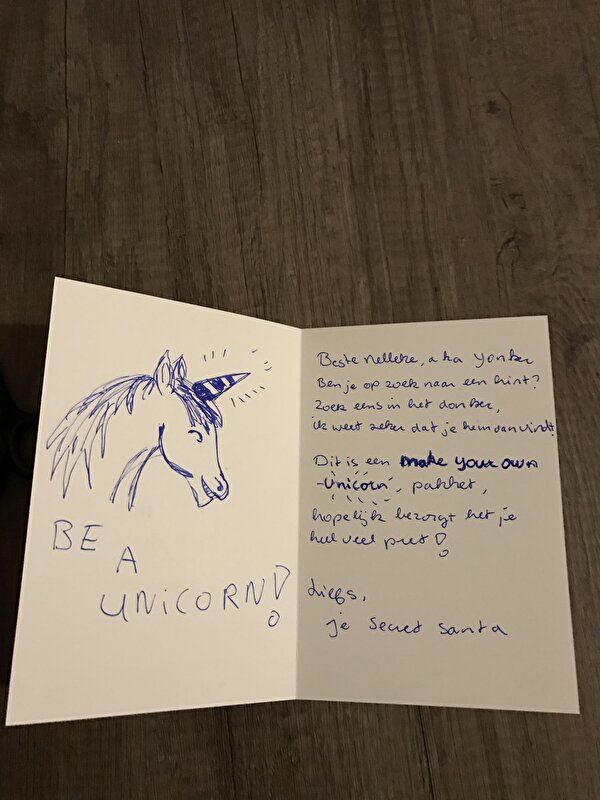 BE
A
UNICORN!
Beste Nelleke, aka Yonker
Ben je op zoek naar een hint?
Zoek eens in het donker,
ik weet zeker dat je hem dan vindt!
Dit is een make your own
-Unicorn-, pakket,
hopelijk bezorgt het je
heel veel pret!
Liefs,
je Secret Santa